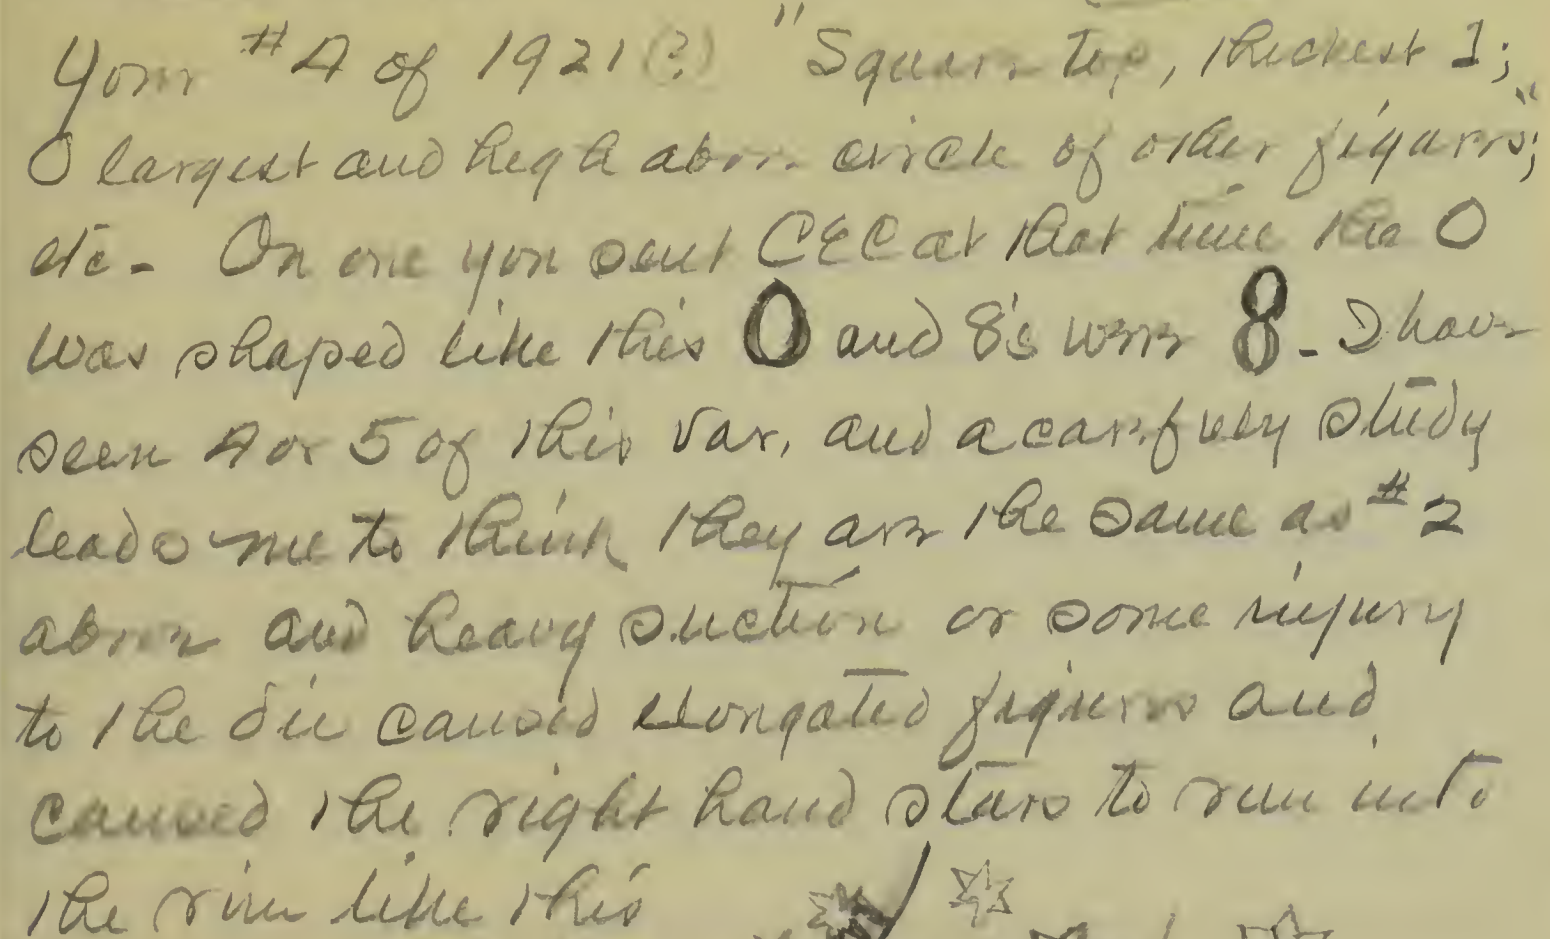 Your #4 of 1921(?) "Square top, thickest 1;
0 largest and high above circle of other figures";
etc - On one you sent CEC at that time the 0
was shaped like this 0 and 8's were 8 - I have
seen 4 or 5 of this var, and a carefuly study
leads me to think they are the same as #2
above and heavy suction or some injury
to the die caused elongated figures and
caused the right hand stars to run into
the rim like this